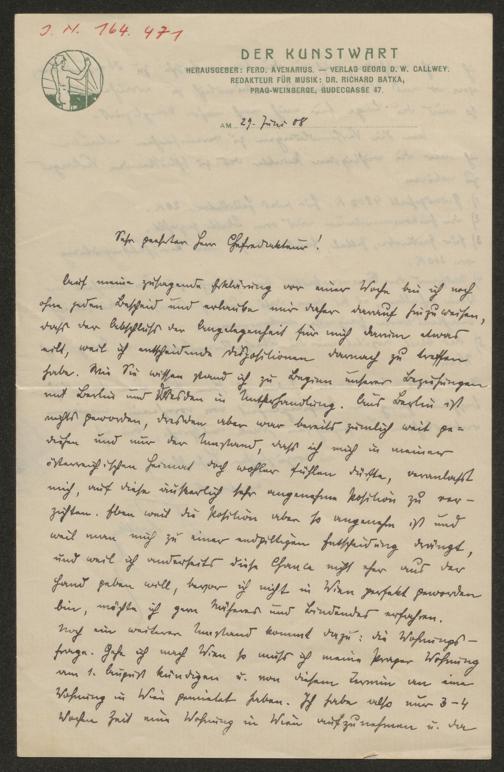 J. N. 164.471
DER KUNSTWART
HERAUSGEBER: FERD. AVENARIUS. — VERLAG GEORG D. W. CALLWEY.
REDAKTEUR FÜR MUSIK: DR. RICHARD BATKA,
PRAG-WEINBERGE, BUDECGASSE 47.
AM 29. Juni 08
Sehr geehrter Herr Chefredakteur!
Auf meine zusagende Erklärung vor einer Woche bin ich noch
ohne jeden Bescheid und erlaube mir daher darauf hinzuweisen,
dass der Abschluss der Angelegenheit für mich darum etwas
eilt, weil ich entscheidende Dispositionen darnach zu treffen
habe. Wie Sie wissen stand ich zu Beginn unserer Beziehungen
mit Berlin und Dresden in Unterhandlung. Aus Berlin ist
nichts geworden, Dresden aber war bereits ziemlich weit ge-
diehen und nur der Umstand, dass ich mich in meiner
österreichischen Heimat doch wohler fühlen dürfte, veranlasst
mich, auf diese äusserlich sehr angenehme Position zu ver-
zichten. Eben weil die Position aber so angenehm ist und
weil man mich zu einer endgiltigen Entscheidung drängt,
und weil ich anderseits diese Chance nicht eher aus der
Hand geben will, bevor ich nicht in Wien perfekt geworden
bin, möchte ich gern Näheres und Bindendes erfahren.
Noch ein weiterer Umstand kommt dazu: die Wohnungs-
frage. Gehe ich nach Wien so muss ich meine Prager Wohnung
am 1. August kündigen u. von diesem Termin an eine
Wohnung in Wien gemietet haben. Ich habe also nur 3-4
Wochen Zeit eine Wohnung in Wien aufzunehmen u. da